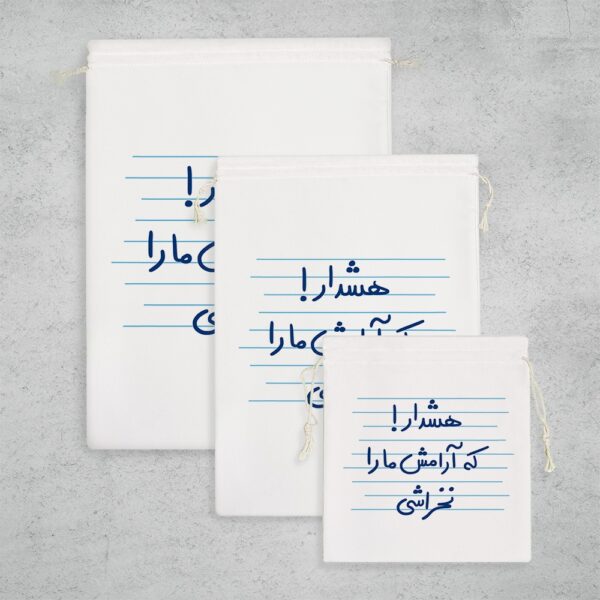 ر!
ما را
ی
هشدار!
که آرامش ما را
هشدار!
که آرامش ما را
نخراشی